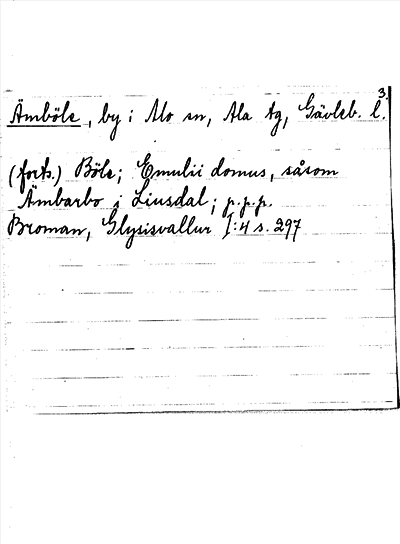 3.
Ämböle, by i Alo sn, Ala tg, Gävleb. l.
(forts.) Böle; Emulii domus, såsom
Ämbarbo i Liusdal; p.p.p.
Broman, Glysisvallur I:4 s. 297